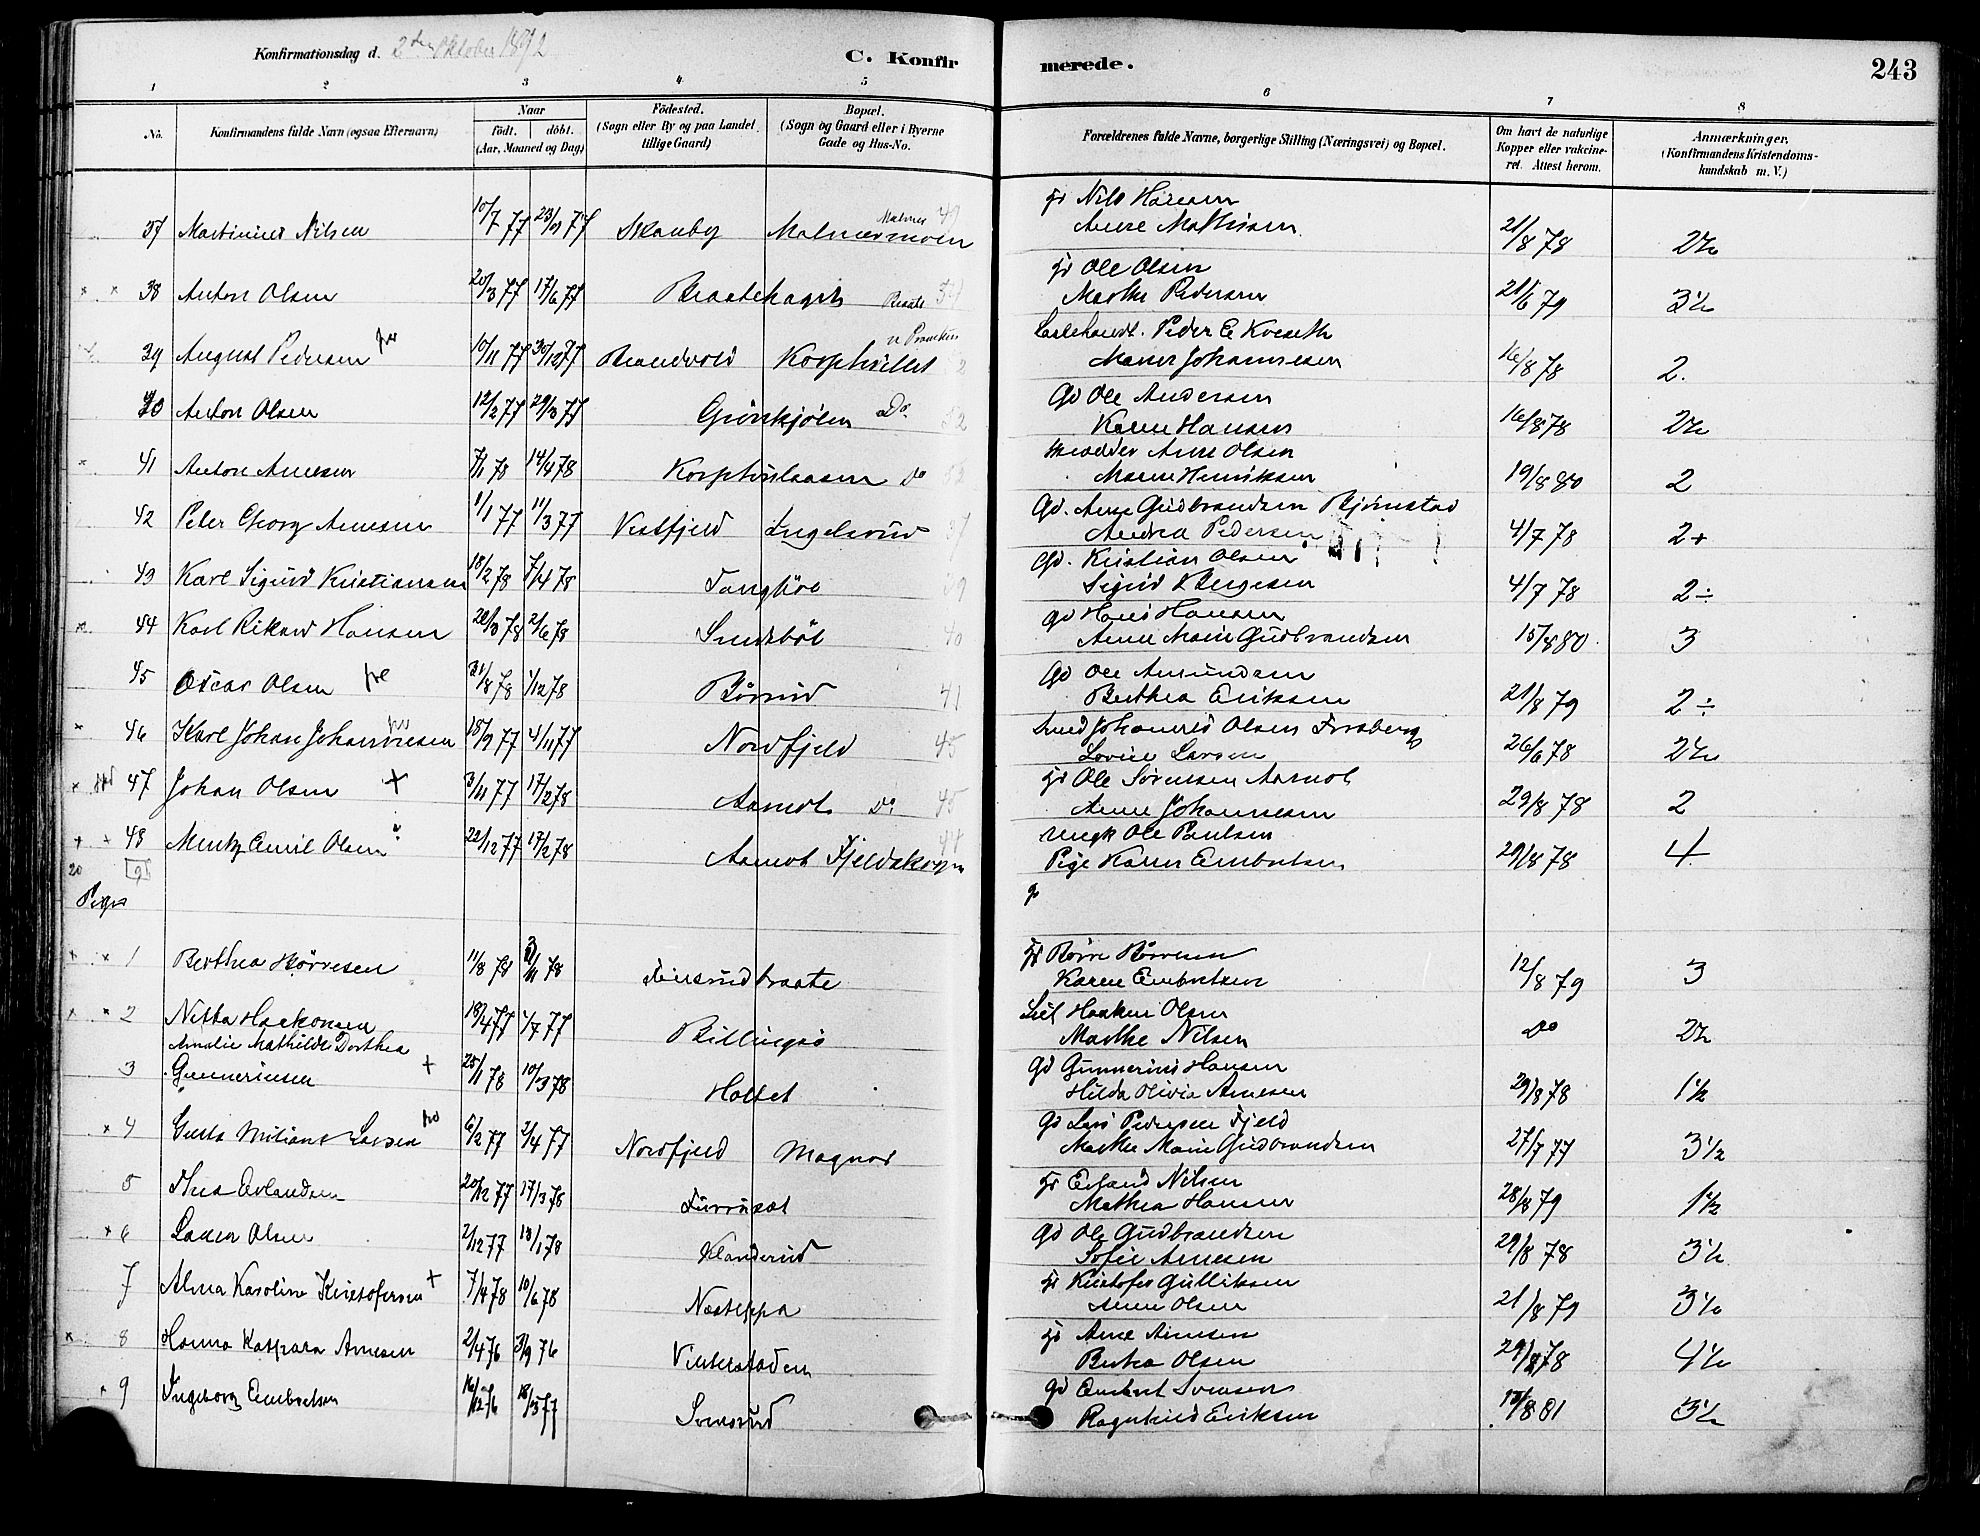 Konfirmationsdag d. 2den Oktober 1892
C. Konfirmerede.
243
1 2 3 4 5 6 7 8
No.
Konfirmandens fulde Navn (ogsaa Efternavn)
Naar
født. døbt.
(Aar, Maaned og Dag)
Fødested.
(Sogn eller By og paa Landet tillige Gaard)
Bopæl.
(Sogn og Gaard eller i Byerne Gade og Hus-No.
Forældrenes fulde Navne, borgerlige Stilling (Næringsvei) og Bopæl.
Om havt de naturlige Kopper eller vakcineret. Attest herom.
Anmærkninger.
(Konfirmandens Kristendomskundskab m. V.)
37 Martinius Nilsen 10/7 77 77 Skanby 49 Nils Hansen
Anne Mathisen 21/8 78 2½
38 Anton Olsen 20/3 77 17/6 77 Braatehagen Braate Ole Olsen
Marthe Pedersen 21/6 79 3½
39 August Pedersen 10/11 77 30/12 77 Brandvold Korphullet Peder E Kveseth
Maren Johannesen 16/8 78 2.
40 Anton Olsen 12/2 77 29/3 77 Grønkjølen Do. 52 Gd Ole Andersen
Karen Hansen 16/8 78 2½
41 Anton Arnesen 7/1 78 14/4 78 Do 52 Arne Olsen
Maren Henriksen 19/8 80 2
42 Peter Georg Arnesen 1/1 77 11/3 77 Vestfjeld Ingelsrud 37 Gd. Arne Gudbrandsen Bjørnstad
Andrea Pedersen 4/7 78 2+
43 Karl Sigurd Kristiansen 18/2 78 7/4 78 Tangbøl 39 Gd. Kristian Olsen
Sigrid Børgesen 4/7 78 2÷
44 Karl Rikard Hansen 28/3 78 2/6 78 Sundbøl 40 Gd Hans Hansen
Anne Marie Gudbrandsen 15/8 80 3
45 Oscar Olsen 31/8 78 1/12 78 Børrud 41 Gd Ole Amundsen
Berthea Eriksen 21/8 79 2÷
46 Karl Johan Johannesen 18/9 77 4/11 77 Nordfjeld 45 Johannes Olsen Forsberg
Lovise Larsen 26/6 78 2½
47 Johan Olsen + 3/11 77 17/2 78 Aamot Do 45 Ole Sørensen Aamot
Anne Johannesen 29/8 78 2
48 Mentz Emil Olsen 22/12 77 17/2 78 Aamot Fjeldskogen 44 Ungk Ole Paulsen
Pige Karen Embretsen 29/8 78 4
20
Piger
1 Berthea Børresen 11/8 78 3/11 78 Feiersrudbraate Børre Børresen
Karen Embretsen 12/8 79 3
2 Netta Haakonsen 18/4 77 1/7 77 Billingsø Haaken Olsen
Marthe Nilsen Do 2½
Amalie Mathilde Dorthea
3 Gunneriusen + 25/1 78 10/3 78 Holtet Gd Gunnerius Hansen
Hilda Olivia Arnesen 29/8 78 1½
4 Gusta Miliane Larsen 6/2 77 2/4 77 Nordfjeld Magnor Gd Lars Pedersen Fjeld
Marthe Marie Gudbrandsen 27/7 77 3½
5 Thea Erlandsen 20/12 77 17/3 78 Furuset Erland Nilsen
Mathea Hansen 28/8 79 1½
6 Laura Olsen 2/12 77 13/1 78 Klanderud Gd Ole Gudbrandsen
Sofie Arnesen 29/8 78 3½
7 Alma Karoline Kristofersen + 7/4 78 10/6 78 Næsteppa Kristofer Gulliksen
Anne Olsen 21/8 79 3½
8 Hanna Kaspara Arnesen 2/4 76 3/9 76 Arne Arnesen
Berthea Olsen 29/8 78 4½
9 Ingeborg Embretsen 16/12 76 18/3 77 Sorrerud Gd Embret Svensen
Ragnhild Eriksen 15/8 81 3½